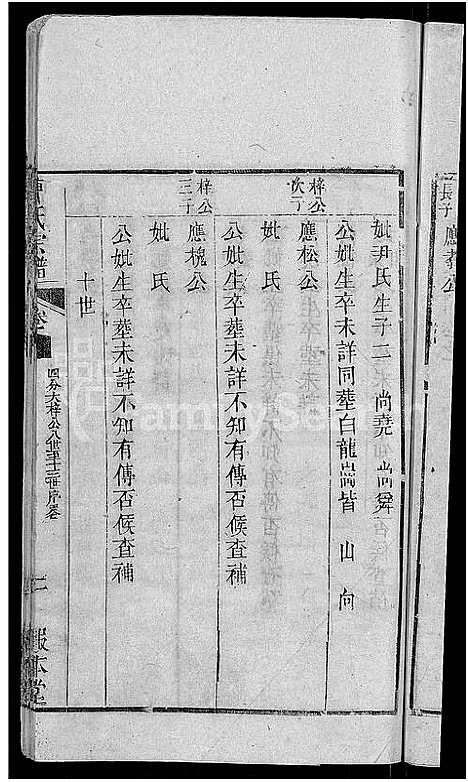 長子 應孝公
妣尹氏生子二 尚堯 尚舜
公妣生卒未詳同塟白龍崗皆 山 向
梓公次子 應松公
妣 氏
公妣生卒塟未詳不知有傳否候查補
梓公三子 應槐公
妣 氏
公妣生卒塟未詳不知有傳否候查補
十世
氏宗譜 卷
四分大梓公八世至十三世序卷
二
報本堂
FamilySearch